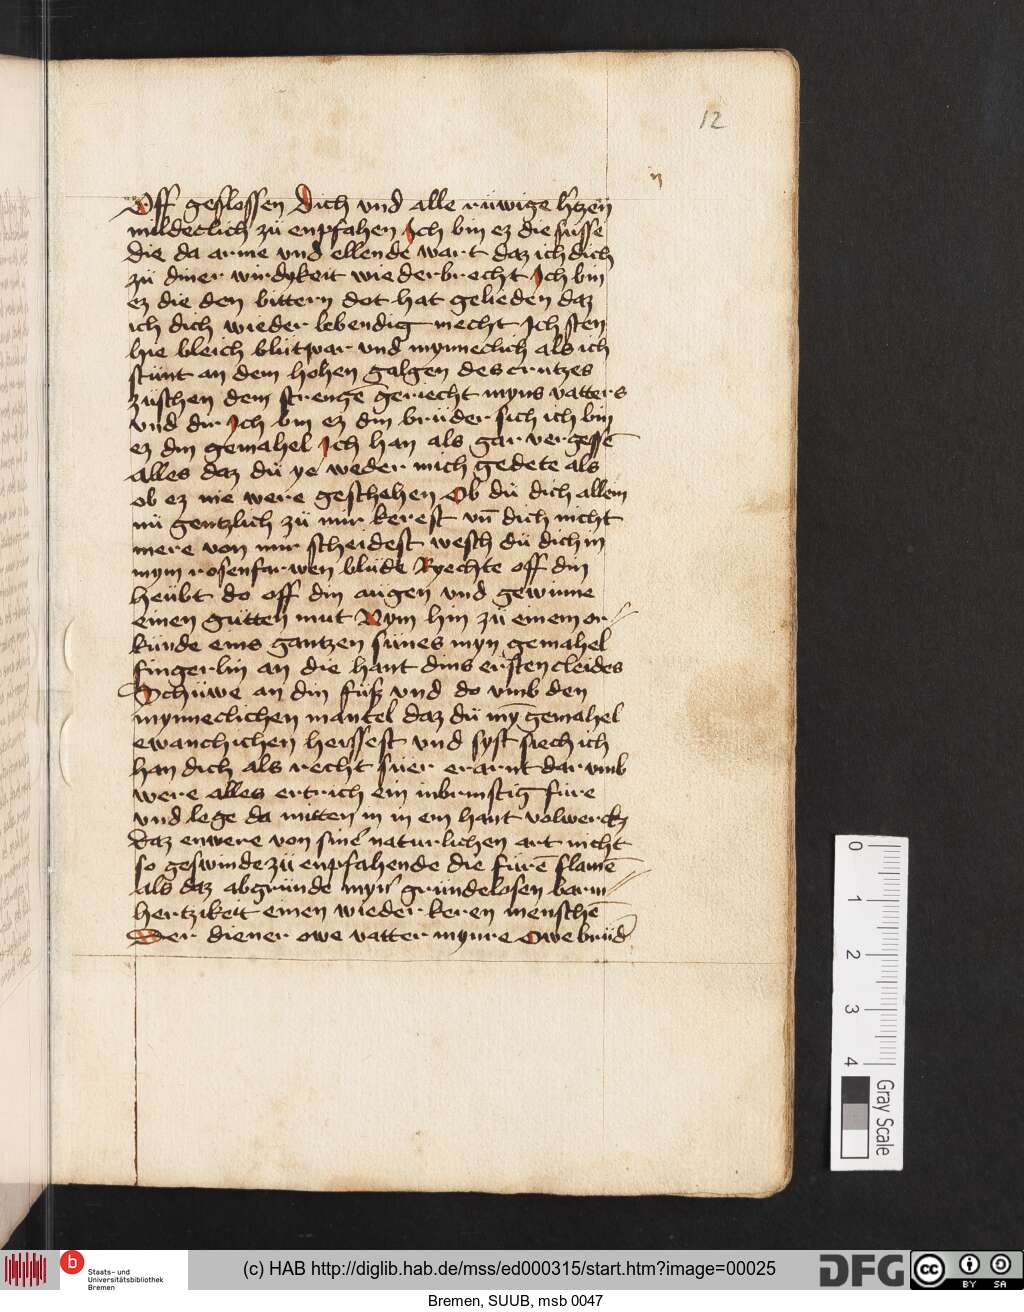 12
Off geslossen Dich vnd alle rüwige h̄tzen
mildeclich zü enpfahen Ich bin ez die süsse
die da arme vnd ellende wart daz ich dich
zü diner wirdykeit wiederbrecht Ich bin
ez die den bittern dot hat gelieden daz
ich dich wieder lebendig mecht Ich sten
hie bleich blütvar vnd mynneclich als ich
stünt an dem hohen galgen des crutzes
züschen dem strengē geriecht myns vatters
vnd dir Ich bin ez din brüder sich ich bin
ez din gemahel Ich han als gar vergessē
alles daz dü ye weder mich gedete als
ob ez nie were geschehen Ob dü dich allein
nü gentzlich zü mir kerest vn̄ dich nicht
mere von mir scheidest wesch dü dich in
mym rosenfarwen blüde Ryechte off din
heübt do off din augen vnd gewinne
einen gütten mut Nym hin zü einem or
künde eins gantzen sünes myn gemahel
fingerlin an die hant dins ersten cleides
Schüwe an din füß vnd do vmb den
mynneclichen mantel daz dü mȳ gemahel
ewanchichen heissest vnd syst siech ich
han dich als recht süer erarnt dar vmb
were alles ertrich ein inbrinstig füre
vnd lege da mitten in in ein hant volwercks
daz enwere von sinē naturlichen art nicht
so geswinde zü enpfahende die fürē flamē
als daz abgründe myn̄ gründelosen barm
hertzikeit einen wieder keren menschē
Der diener owe vatter mynre Owe brüd̄
0 1 2 3 4
Gray Scale
b
Staats- und
Universitätsbibliothek
Bremen
(c) HAB http://diglib.hab.de/mss/ed000315/start.htm?image=00025
DFG
cc
BY SA
Bremen, SUUB, msb 0047